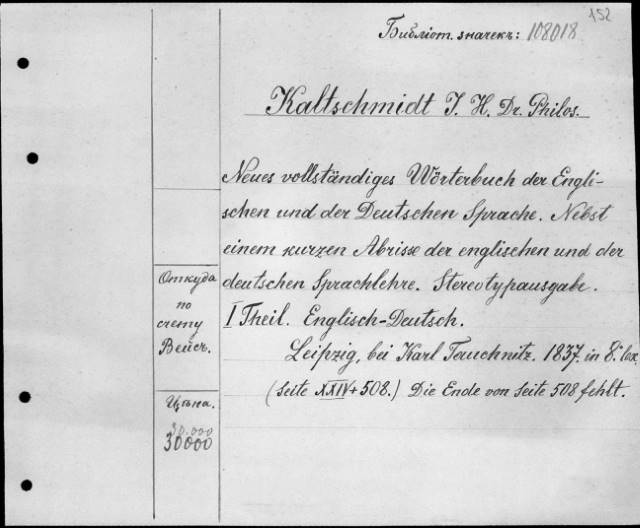 152
Библіот. значекъ: 108018
Kaltschmidt J. H. Dr. Philos.
Neues vollständiges Wörterbuch der Engli-
schen und der Deutschen Sprache. Nebst
einem kurzen Abrisse der englischen und der
deutschen Sprachlehre. Stereotypausgabe.
I Theil. Englisch-Deutsch.
Leipzig, bei Karl Tauchnitz. 1837. in 8.° lex.
(Seite XXIV+508.) Die Ende von Seite 508 fehlt.
Откуда
по
счету
Вейсъ.
Цѣна.
30.000
30000